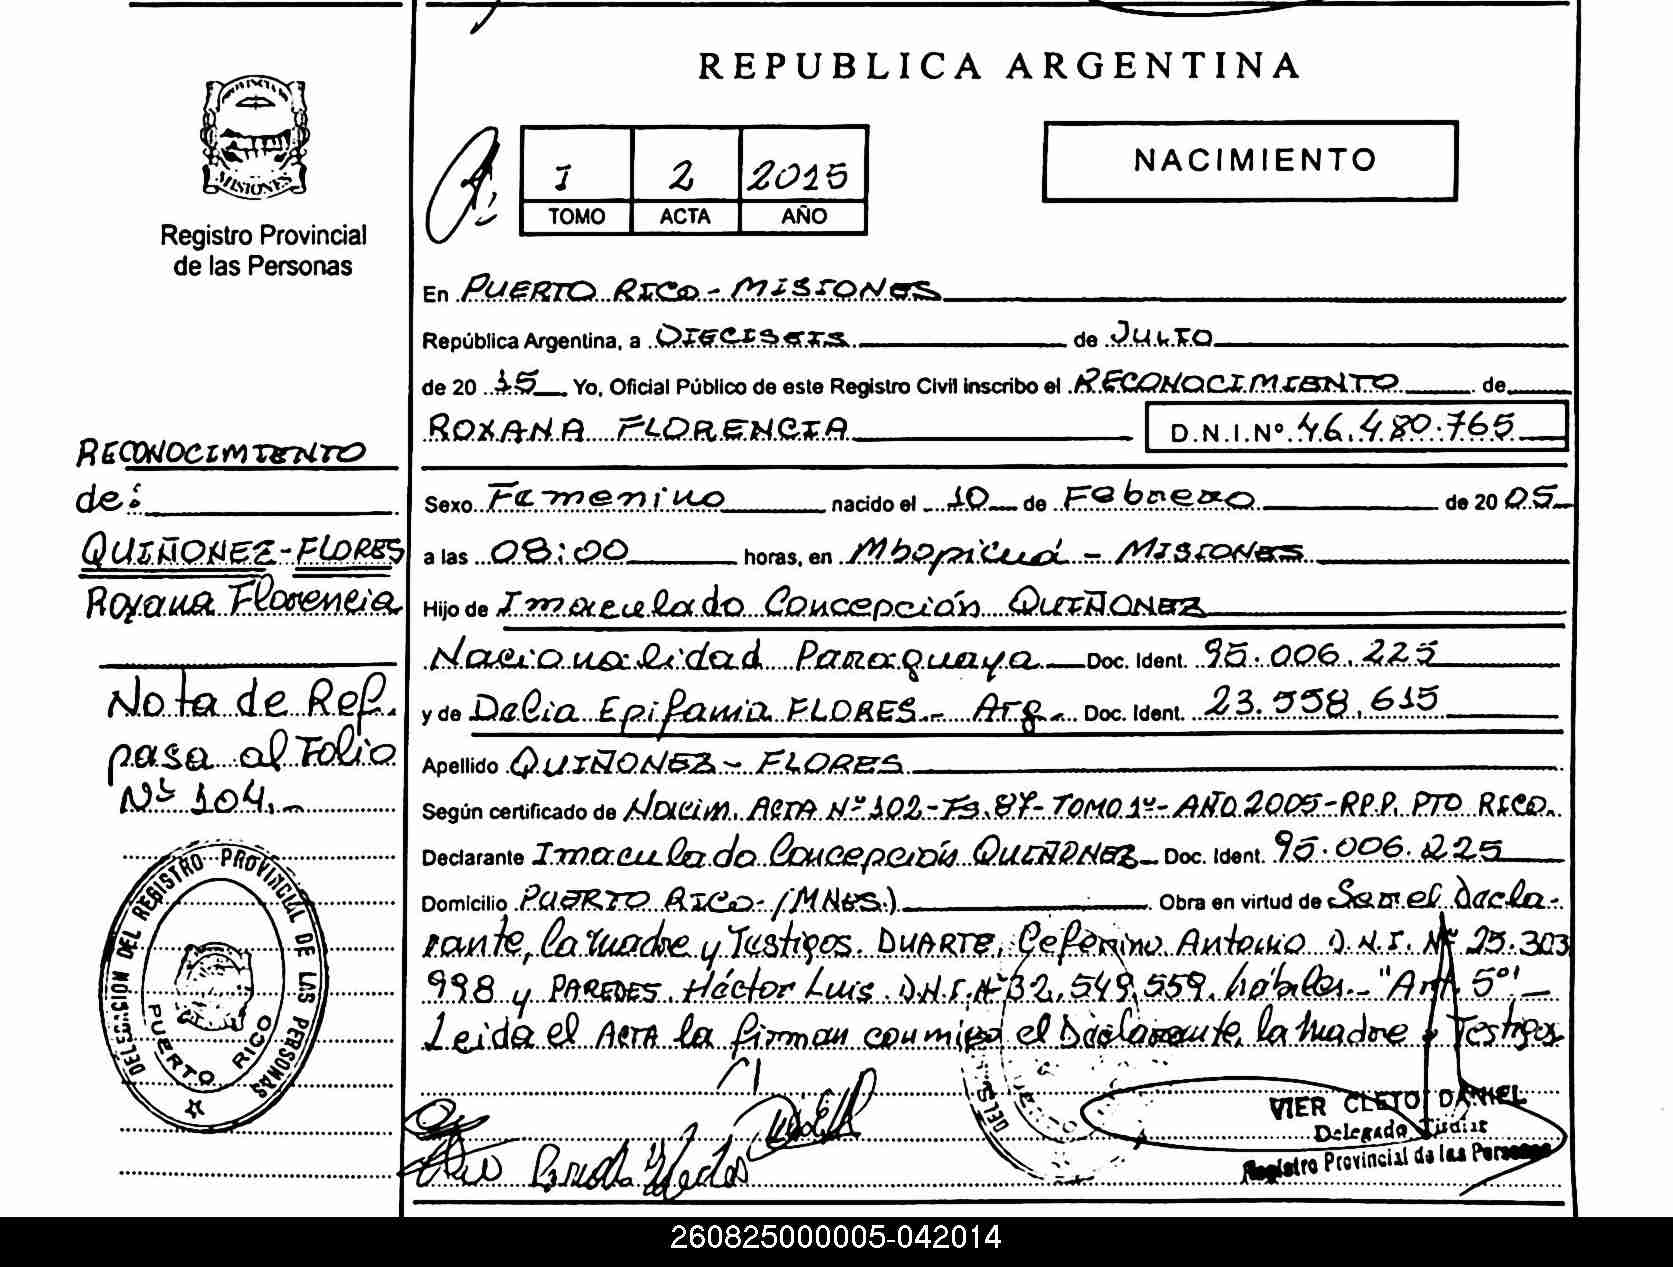 REPUBLICA ARGENTINA
MISIONES
Registro Provincial
de las Personas
I 2 2015
TOMO ACTA AÑO
NACIMIENTO
En PUERTO RICO - MISIONES
República Argentina, a DIECISEIS de JULIO
de 20 15 Yo, Oficial Público de este Registro Civil inscribo el RECONOCIMIENTO de
ROXANA FLORENCIA D.N.I.Nº 46.480.765
Sexo Femenino nacido el 10 de Febrero de 20 05
a las 08:00 horas, en Mbopicuá - MISIONES
Hijo de Imaculado Concepción QUIÑONEZ
Nacionalidad Paraguaya Doc. Ident. 95.006.225
y de Delia Epifania FLORES - Arg. Doc. Ident. 23.558.615
Apellido QUIÑONEZ - FLORES
Según certificado de Nacim. ACTA Nº 102 - Fs. 87 - TOMO 1º - AÑO 2005 - R.P.P. PTO RICO.
Declarante Imaculado Concepción QUIÑONEZ Doc. Ident. 95.006.225
Domicilio PUERTO RICO - (MNES.) Obra en virtud de Ser el Decla-
rante, la madre y Testigos. DUARTE, Ceferino Antonio D.N.I. Nº 25.303
998 y PAREDES, Héctor Luis. D.N.I. Nº 32.549.559, hábiles. - "Art. 5º" -
Leida el ACTA la firman conmigo el Declarante, la madre y Testigos
RECONOCIMIENTO
de:
QUIÑONEZ - FLORES
Roxana Florencia
Nota de Ref.
pasa al Folio
Nº 104.-
DELEGACION DEL REGISTRO PROVINCIAL DE LAS PERSONAS
PUERTO RICO
VIER CLETO DANIEL
Delegado Titular
Registro Provincial de las Personas
260825000005-042014